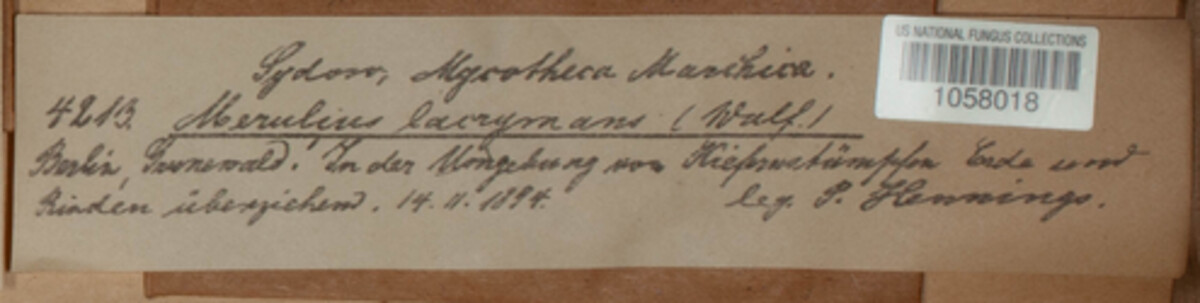 US NATIONAL FUNGUS COLLECTIONS
1058018
Sydow, Mycotheca Marchica.
4213. Merulius lacrymans (Wulf.)
Berlin, Grunewald. In der Umgebung von Kiefernstümpfen Erde und
Rinden überziehend. 14. 11. 1894. leg. P. Hennings.